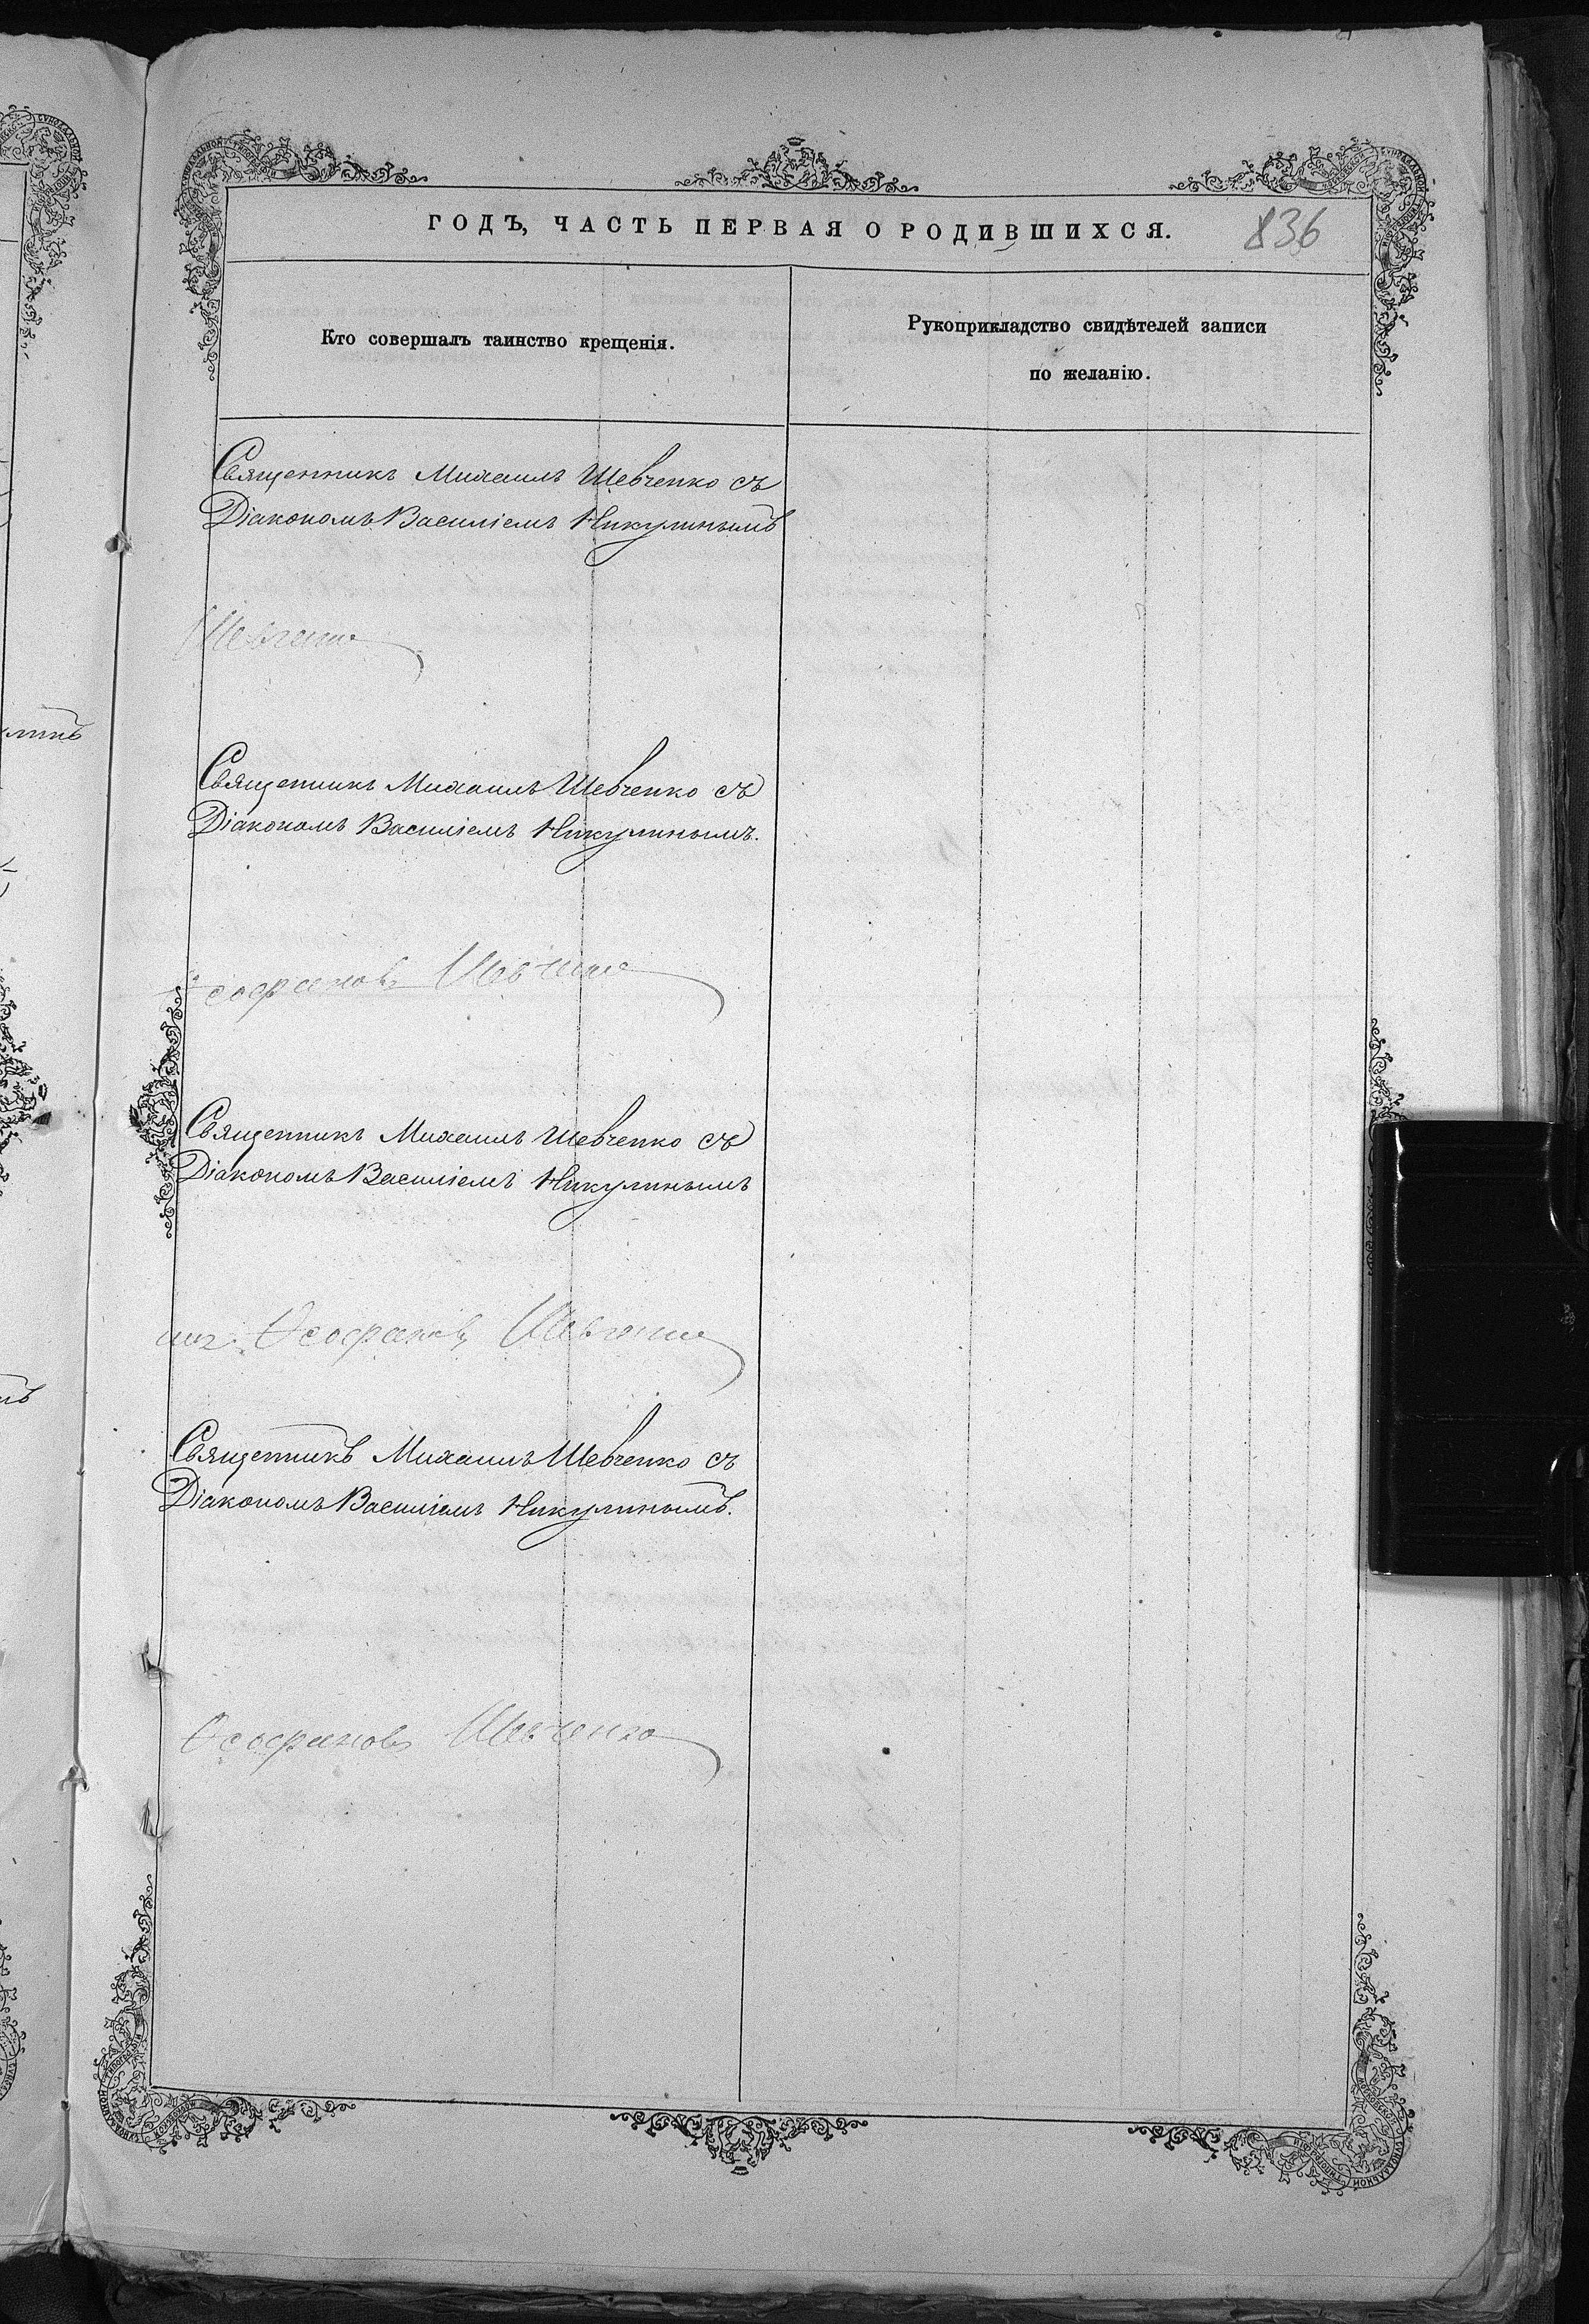 ГОДЪ, ЧАСТЬ ПЕРВАЯ О РОДИВШИХСЯ.
836
Кто совершалъ таинство крещенія.
Рукоприкладство свидѣтелей записи
по желанію.
Священникъ Михаилъ Шевченко съ
Діакономъ Василіемъ Никулинымъ
Шевченко
Священникъ Михаилъ Шевченко съ
Діакономъ Василіемъ Никулинымъ.
Ѳеофановъ Шевченко
Священникъ Михаилъ Шевченко съ
Діакономъ Василіемъ Никулинымъ
Ѳеофановъ Шевченко
Священникъ Михаилъ Шевченко съ
Діакономъ Василіемъ Никулинымъ.
Ѳеофановъ Шевченко